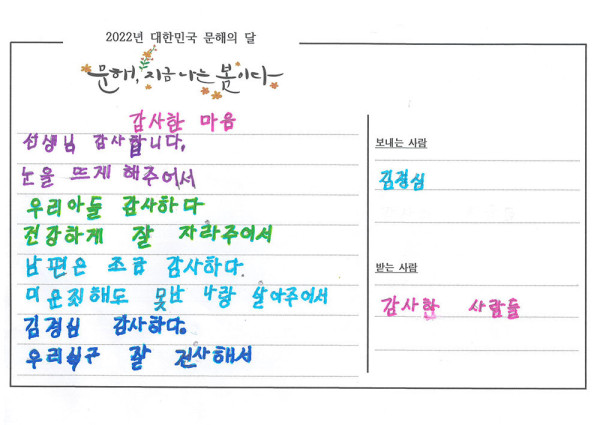 2022년 대한민국 문해의 달
문해, 지금 나는 봄이다
감사한 마음
선생님 감사합니다.
눈을 뜨게 해주어서
우리아들 감사하다
건강하게 잘 자라주어서
남편은 조금 감사하다.
미운짓해도 못난 나랑 살아주어서
김경심 감사하다.
우리식구 잘 건사해서
보내는 사람
김경심
받는 사람
감사한 사람들